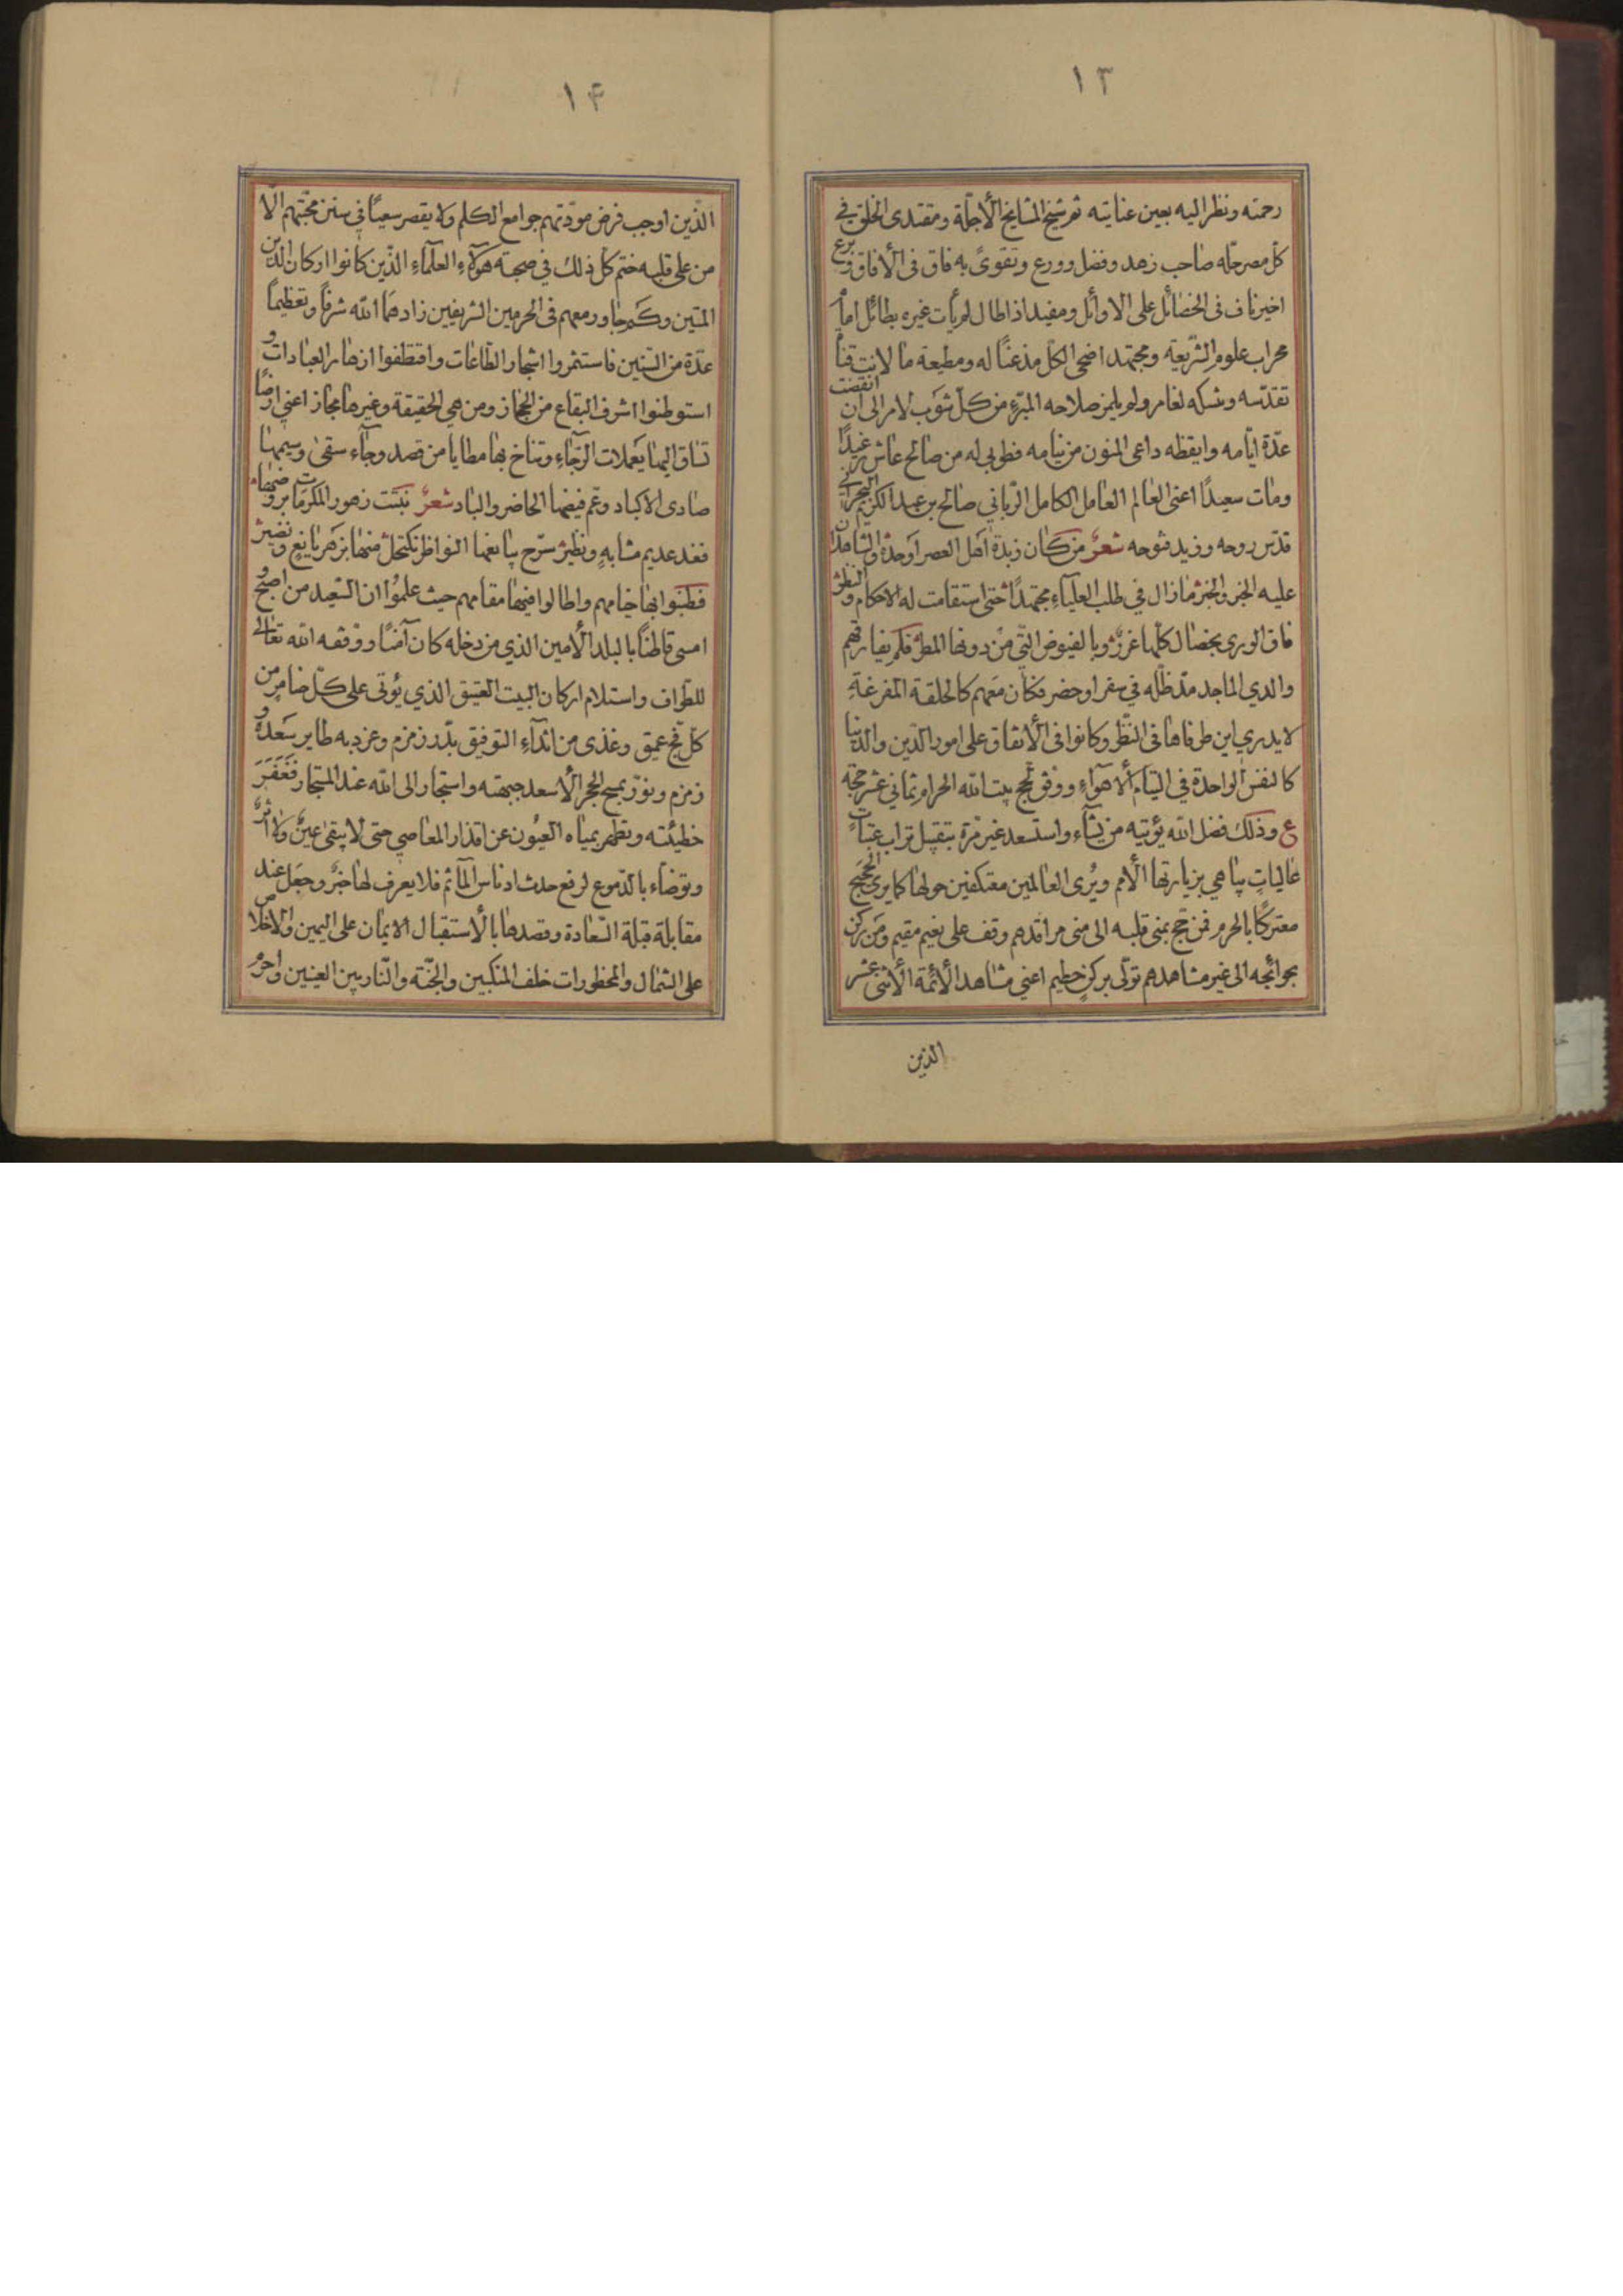 ١٣
رحمته ونظر اليه بعين عنايته ثم شيخ المشايخ الأجلّة ومقتدى الخلق في
كلّ مصر حلّه صاحب زهد وفضل وورع وتقوىً به فاق في الآفاق وبرع
اخير ناف في الخصائل على الاوائل ومفيد اذا طال لم يأت غيره بطائل امام
محراب علوم الشريعة ومجتهد اضحى الكلّ مذعنًا له ومطيعه ما لانت قناة
تقدّسه ونسكه لغامز ولم يلمز صلاحه المبرّء من كلّ شوب لامز الى ان انقضت
عدّة ايّامه وايقظه داعى المنون من نيامه فطوبى له من صالح عاش رغيدًا
ومات سعيدًا اعنى العالم العامل الكامل الرّباني صالح بن عبد الكريم البحراني
قدّس روحه وزيد فتوحه شعرٌ من كان زبدة اهل العصر اوحدهُ والشاهدان
عليه الخبر والخبرُ ما زال في طلب العلياء مجتهدًا حتى استقامت له الاحكام والنظرُ و
فاق الورى بخصال كلّها غررٌ وبالفيوض الّتي من دونها المطرُ فلم يفارقهم
والدي الماجد مدّ ظلّه في سفر او حضر فكان معهم كالحلقة المفرغةِ
لا يدري اين طرفاها في النّظر وكانوا في الأتفاق على امور الدّين والدّنيا
كالنفس الواحدة في اليتام ألاهوآء ووفق لحج بيت الله الحرام ثماني عشر حجّة
ع وذلك فضل الله يؤتيه من يشآء واستسعد غير مرّة بتقبيل تراب عتباتٍ
عاليات يباهي بزيارتها الأمم ويُرى العالمين معتكفين حولها كما يرى الحجيج
معتركًا بالحرم فمن حج بمنى قلبه الى منى مراقدهم وقف على نعيم مقيم ومن ركن
بحوائجه الى غير مشاهدهم تولّى بركنٍ حطيم اعني مشاهد الأئمّة الأثنى عشر
الذين
١۴
الّذين اوجب فرض مودّتهم جوامع الكلم ولا يقصر سعيًا في سنن محبّتهم الّا
من على قلبه ختم كلّ ذلك في صحبة هؤلآء العلمآء الّذين كانوا اركان الدّين
المتين وكم جاور معهم في الحرمين الشريفين زادهما الله شرفًا وتعظيمًا
عدّة من السّنين فاستثمروا اشجار الطّاعات واقتطفوا ازهار العبادات و
استوطنوا اشرف البقاع من الحجاز ومن هي الحقيقة وغيرها مجاز اعني ارضًا
تساق اليها يعملات الرّجآء وتناخ بها مطايا من قصد وجآء سقىٰ وسيمها
صادى الاكباد وعم فيضها الحاضر والباد شعرٌ نبَتت زهور المكرمات بروضها
فغد عديم مشابهٍ ونظيرْ سرّح بيا نعها النواظر تكتحلْ منها بزهر يانعٍ ونضيرْ
فطنّبوا بها خيامهم واطالوا فيها مقامهم حيث علمُوا ان السّعيد من اصبح و
امسى قاطنًا بالبلد الأمين الذي من دخله كان آمنًا ووفّقه الله تعالى
للطّواف واستلام اركان البيت العتيق الذي يؤتى على كلّ ضامر من
كلّ فج عميق وغذى من اثدآءِ التوفيق بدّر زمزم وغرد به طاير سَعده و
زمزم ونوّر بمسح الحجر الأسعد جبهته واستجار الى الله عند المستجار فغفر
خطيئته وتطهر بمياه العيُون عن اقذار المعاصي حتى لا يبقىٰ عينٌ ولا اثرٌ
وتوضّاء بالدّموع لرفع حدث ادناس المآثم فلا يعرف لها خبرٌ وجعل عند
مقابلة قبلة السّعادة وقصدها بالأستقبال الايمان على اليمين والاخلاص
على الشمال والمحظورات خلف المنكبين والجنّة والنّار بين العينين واحرم